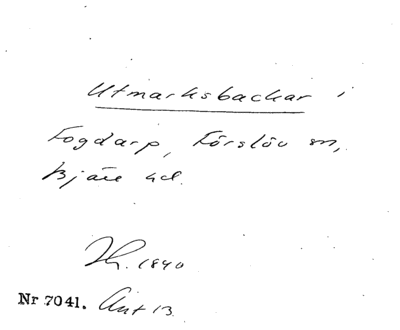 Utmarksbackar i
Fogdarp, Förslöv sn,
Bjäre hd.
Th. 1840
Nr 7041. Ant 13.